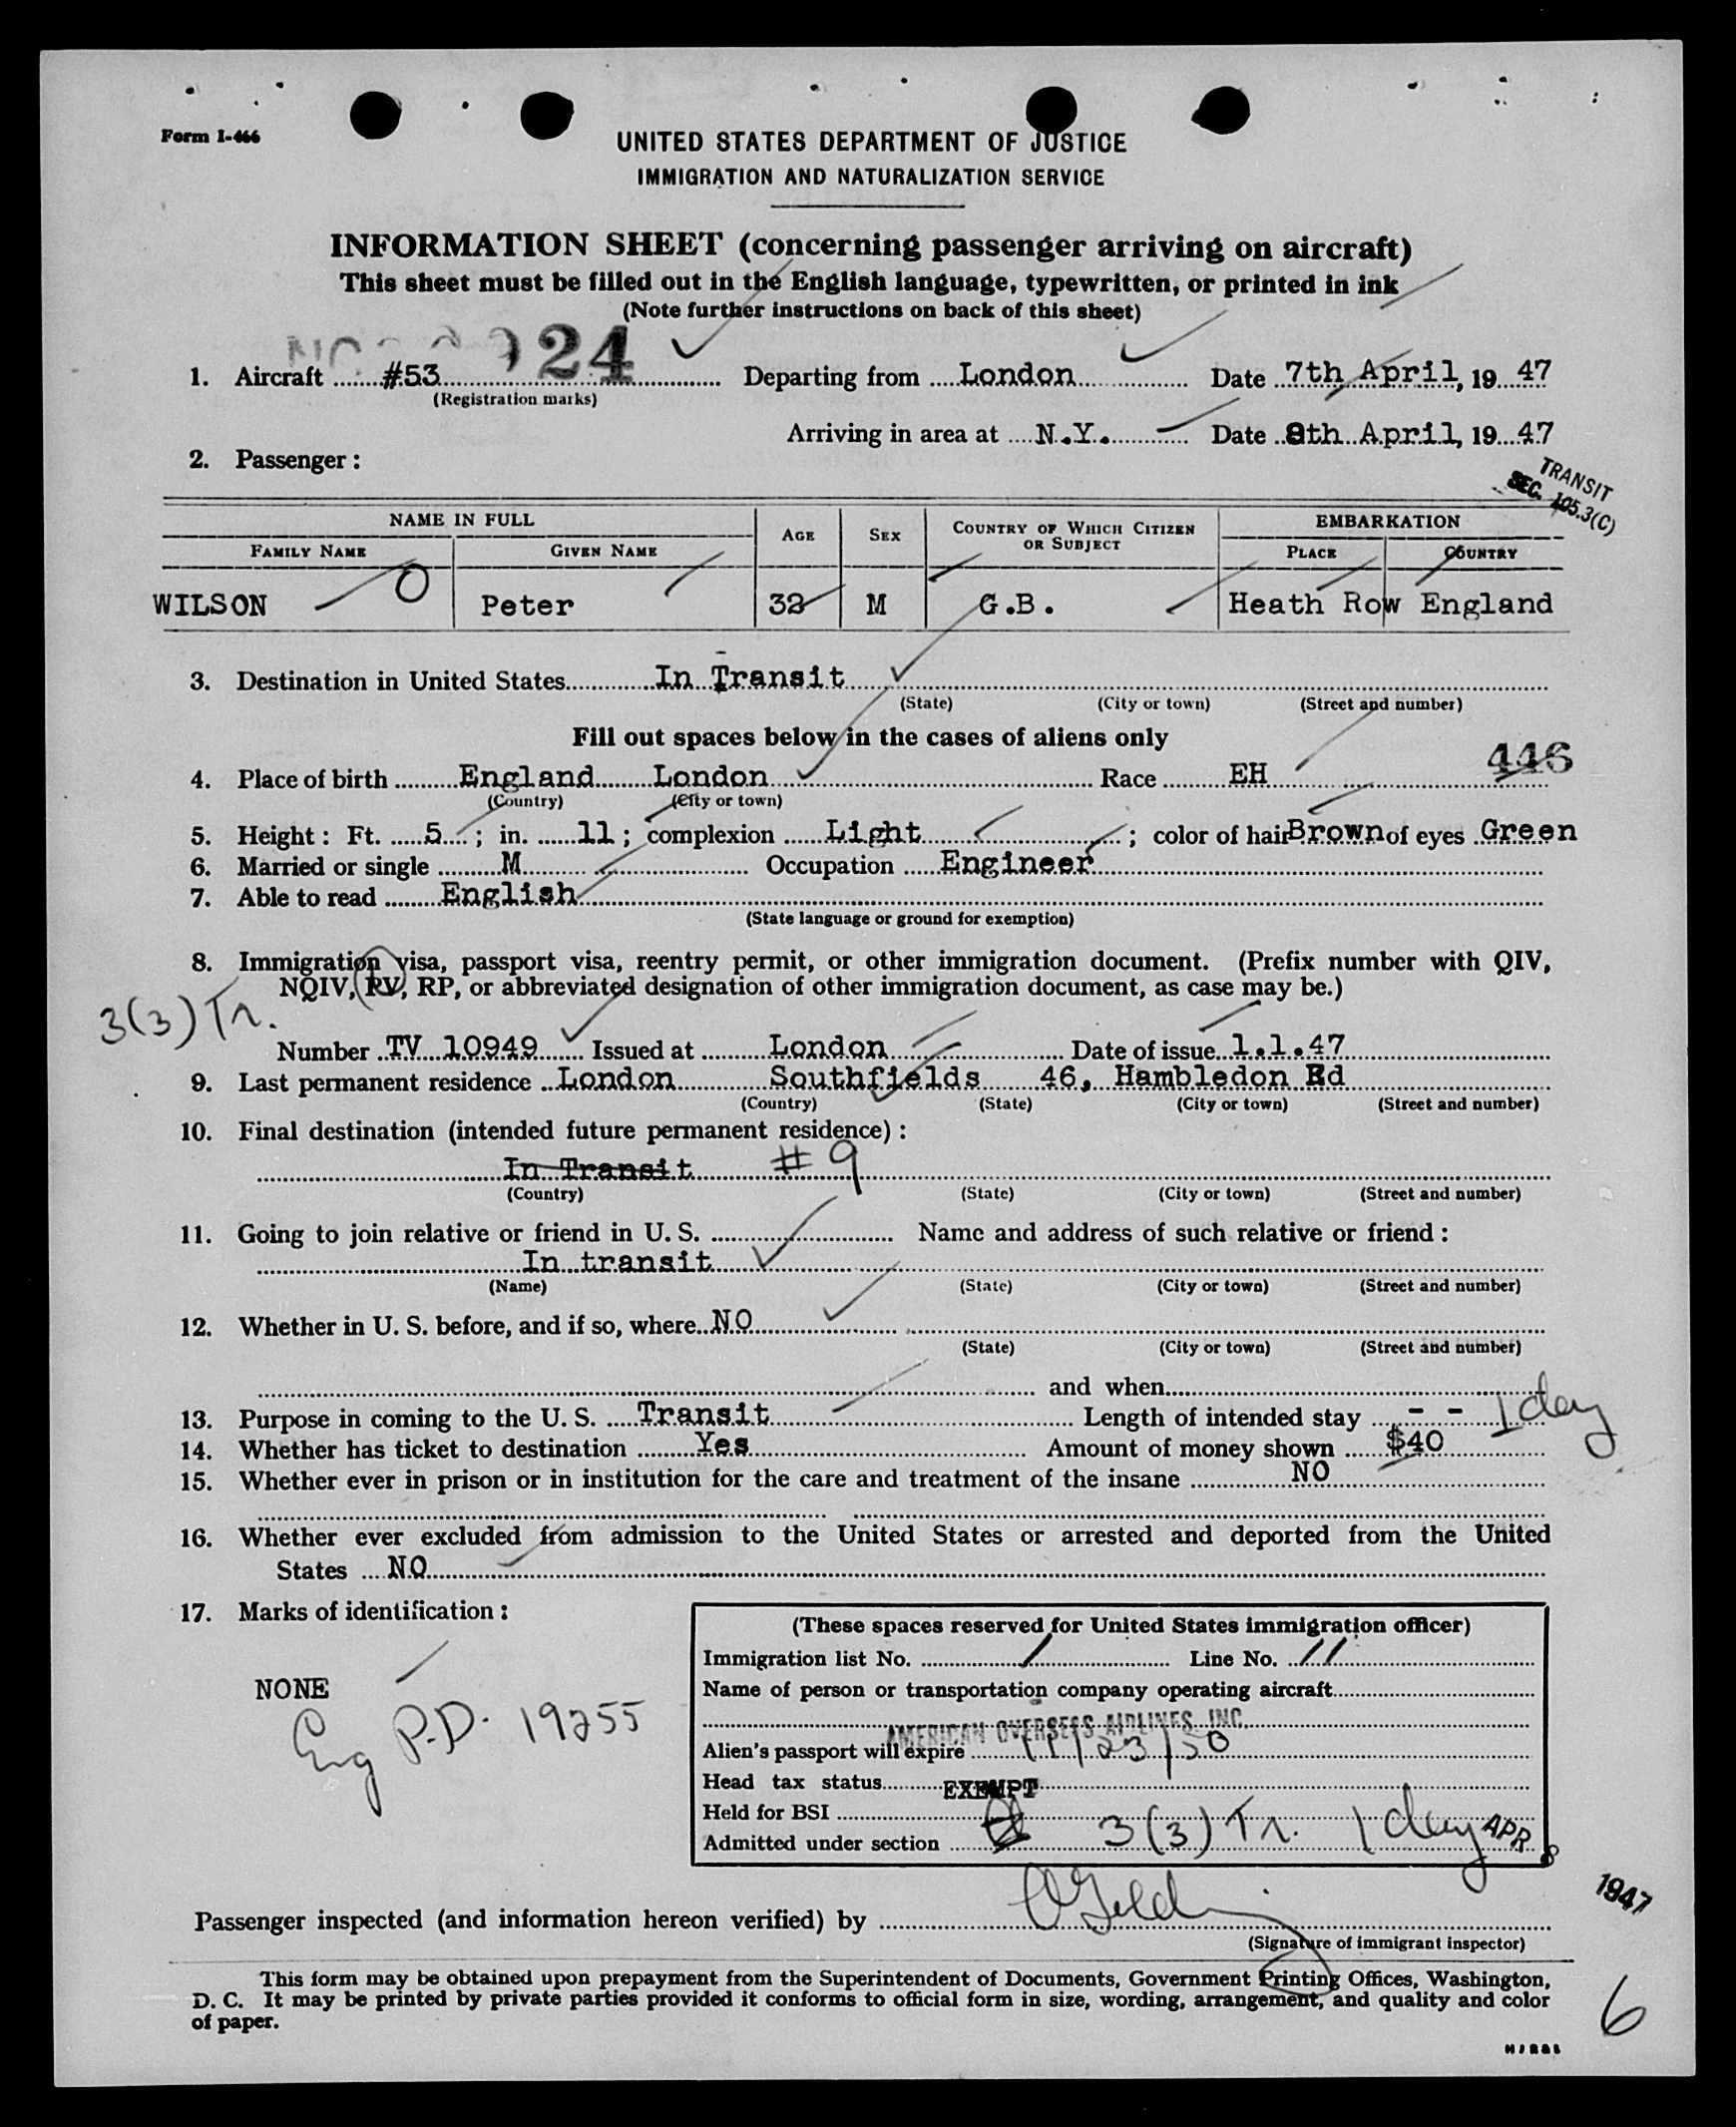 Form I-466
UNITED STATES DEPARTMENT OF JUSTICE
IMMIGRATION AND NATURALIZATION SERVICE
INFORMATION SHEET (concerning passenger arriving on aircraft)
This sheet must be filled out in the English language, typewritten, or printed in ink
(Note further instructions on back of this sheet)
24
1. Aircraft #53 Departing from London Date 7th April, 19 47
(Registration marks)
Arriving in area at N.Y. Date 8th April, 19 47
2. Passenger:
TRANSIT
SEC. 105.3(C)
NAME IN FULL AGE SEX COUNTRY OF WHICH CITIZEN OR SUBJECT EMBARKATION
FAMILY NAME GIVEN NAME PLACE COUNTRY
WILSON O Peter 32 M G.B. Heath Row England
3. Destination in United States In Transit
(State) (City or town) (Street and number)
Fill out spaces below in the cases of aliens only
446
4. Place of birth England London Race EH
(Country) (City or town)
5. Height: Ft. 5 ; in. 11 ; complexion Light ; color of hair Brown of eyes Green
6. Married or single M Occupation Engineer
7. Able to read English
(State language or ground for exemption)
8. Immigration visa, passport visa, reentry permit, or other immigration document. (Prefix number with QIV,
NQIV, PV, RP, or abbreviated designation of other immigration document, as case may be.)
3(3) Tr.
Number TV 10949 Issued at London Date of issue 1.1.47
9. Last permanent residence London Southfields 46, Hambledon Rd
(Country) (State) (City or town) (Street and number)
10. Final destination (intended future permanent residence):
In Transit # 9
(Country) (State) (City or town) (Street and number)
11. Going to join relative or friend in U. S. Name and address of such relative or friend:
In transit
(Name) (State) (City or town) (Street and number)
12. Whether in U. S. before, and if so, where NO
(State) (City or town) (Street and number)
and when
13. Purpose in coming to the U. S. Transit Length of intended stay - - 1 day
14. Whether has ticket to destination Yes Amount of money shown $40
15. Whether ever in prison or in institution for the care and treatment of the insane NO
16. Whether ever excluded from admission to the United States or arrested and deported from the United
States NO
17. Marks of identification:
NONE
Eng P.D. 19255
(These spaces reserved for United States immigration officer)
Immigration list No. 1 Line No. 11
Name of person or transportation company operating aircraft
AMERICAN OVERSEAS AIRLINES, INC.
Alien's passport will expire 11/23/50
Head tax status EXEMPT
Held for BSI
Admitted under section 3(3) Tr. 1 day APR 8 1947
Passenger inspected (and information hereon verified) by
(Signature of immigrant inspector)
This form may be obtained upon prepayment from the Superintendent of Documents, Government Printing Offices, Washington,
D. C. It may be printed by private parties provided it conforms to official form in size, wording, arrangement, and quality and color
of paper.
6